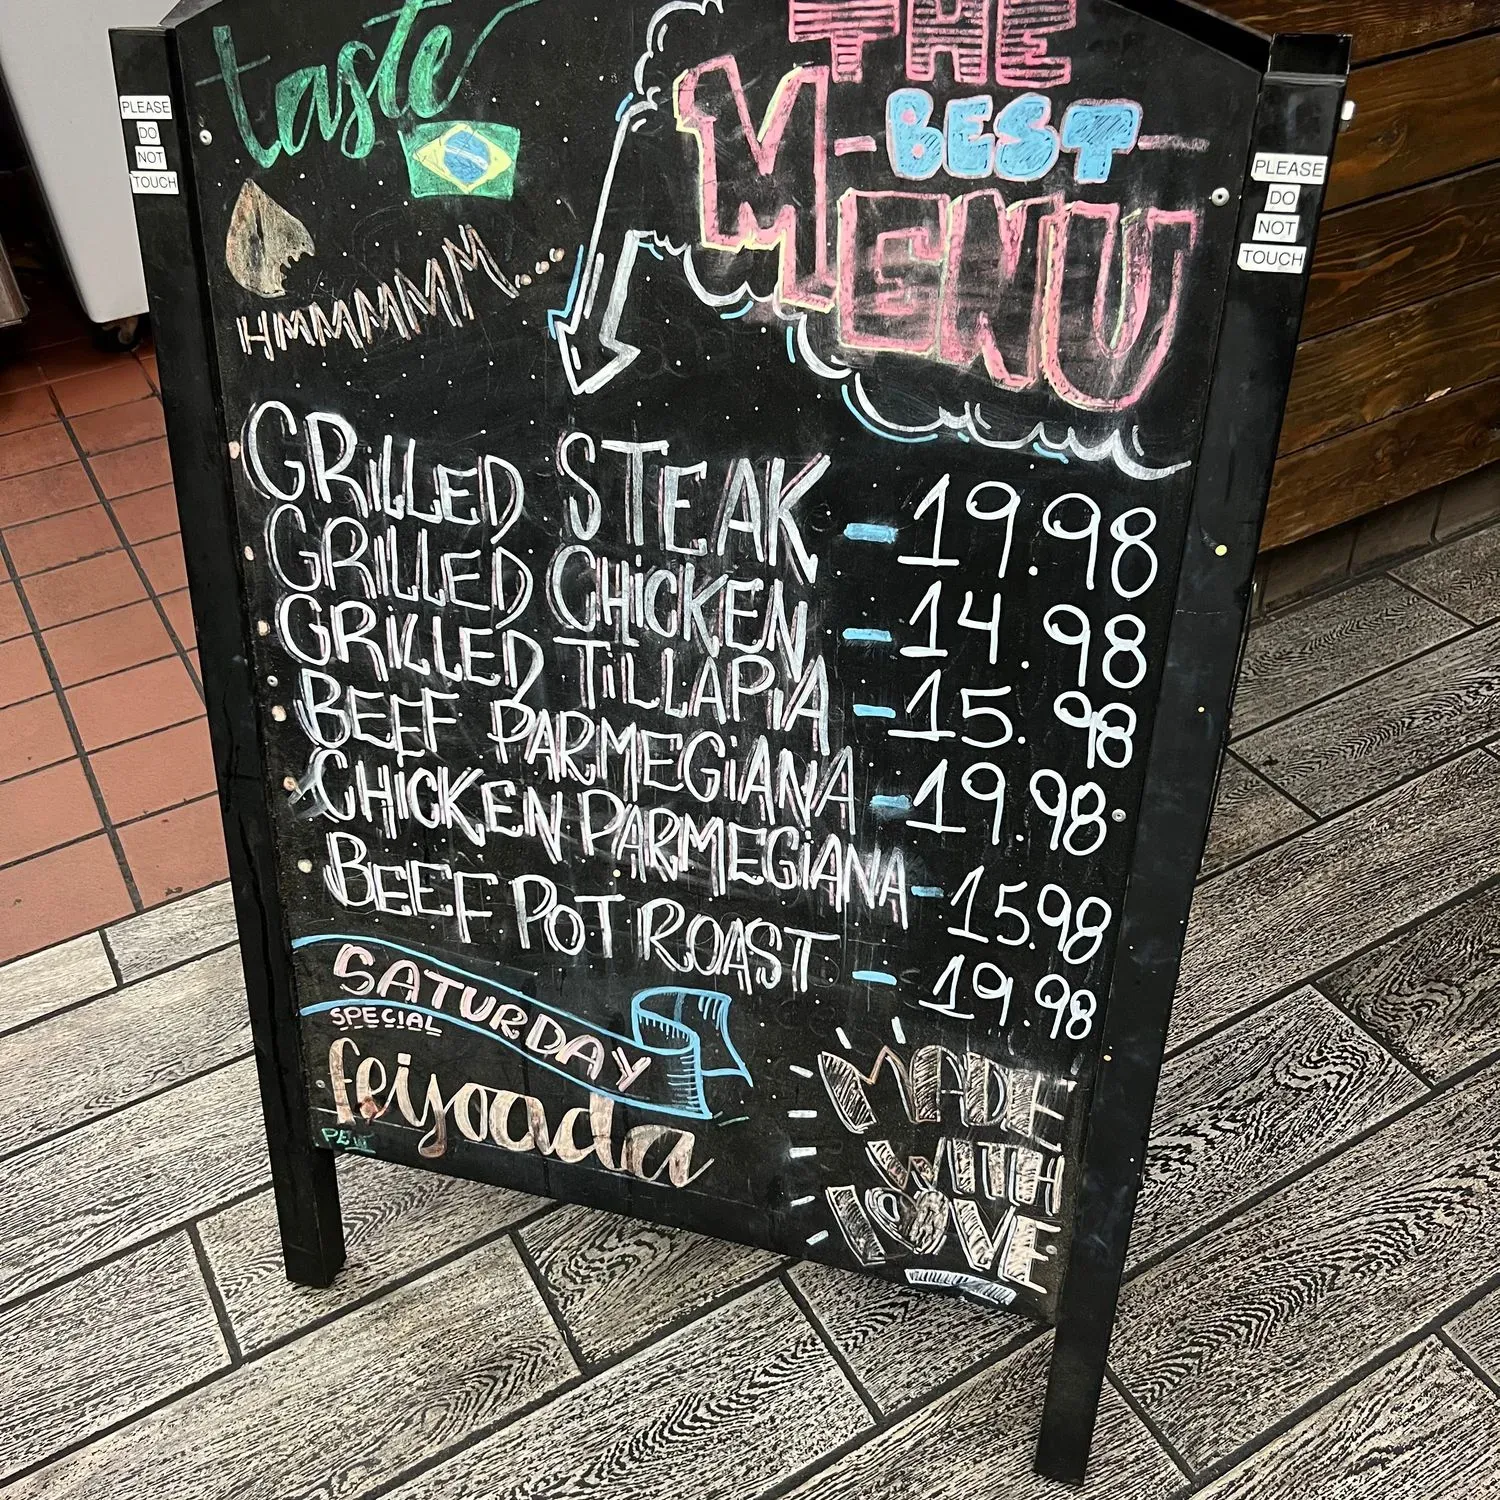 taste
THE
BEST
MENU
PLEASE
DO
NOT
TOUCH
PLEASE
DO
NOT
TOUCH
HMMMMMM...
GRiLLED STEAK - 19.98
GRiLLED CHiCKEN - 14.98
GRiLLED TiLLAPiA - 15.98
BEEF PARMEGiANA - 19.98
CHiCKEN PARMEGiANA - 15.98
BEEF POT ROAST - 19.98
SATURDAY
SPECIAL
feijoada
MADE
WITH
LOVE